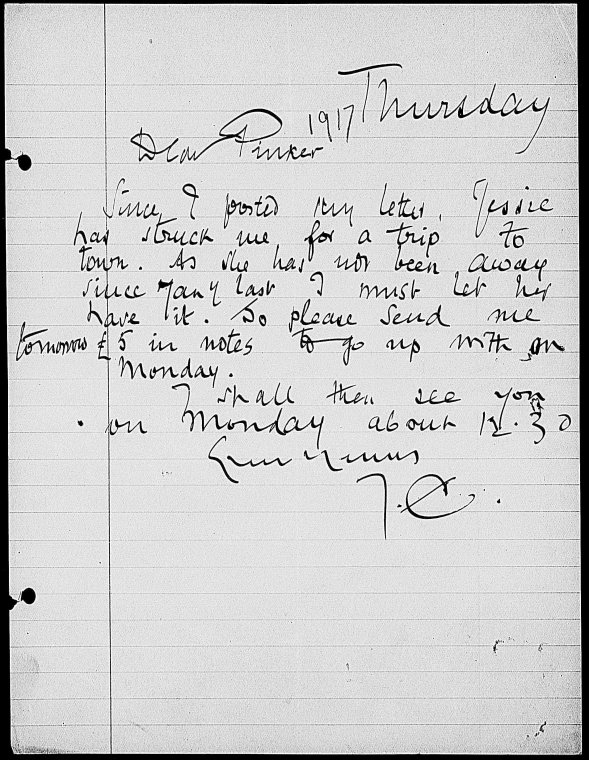 Thursday
1917
Dear Pinker
Since I posted my letter, Jessie
has struck me for a trip to
town. As she has not been away
since Jany last I must let her
have it. So please send me
tomorrow £5 in notes to go up with on
Monday.
I shall then see you
on Monday about 12.30
Ever Yours
J.C.